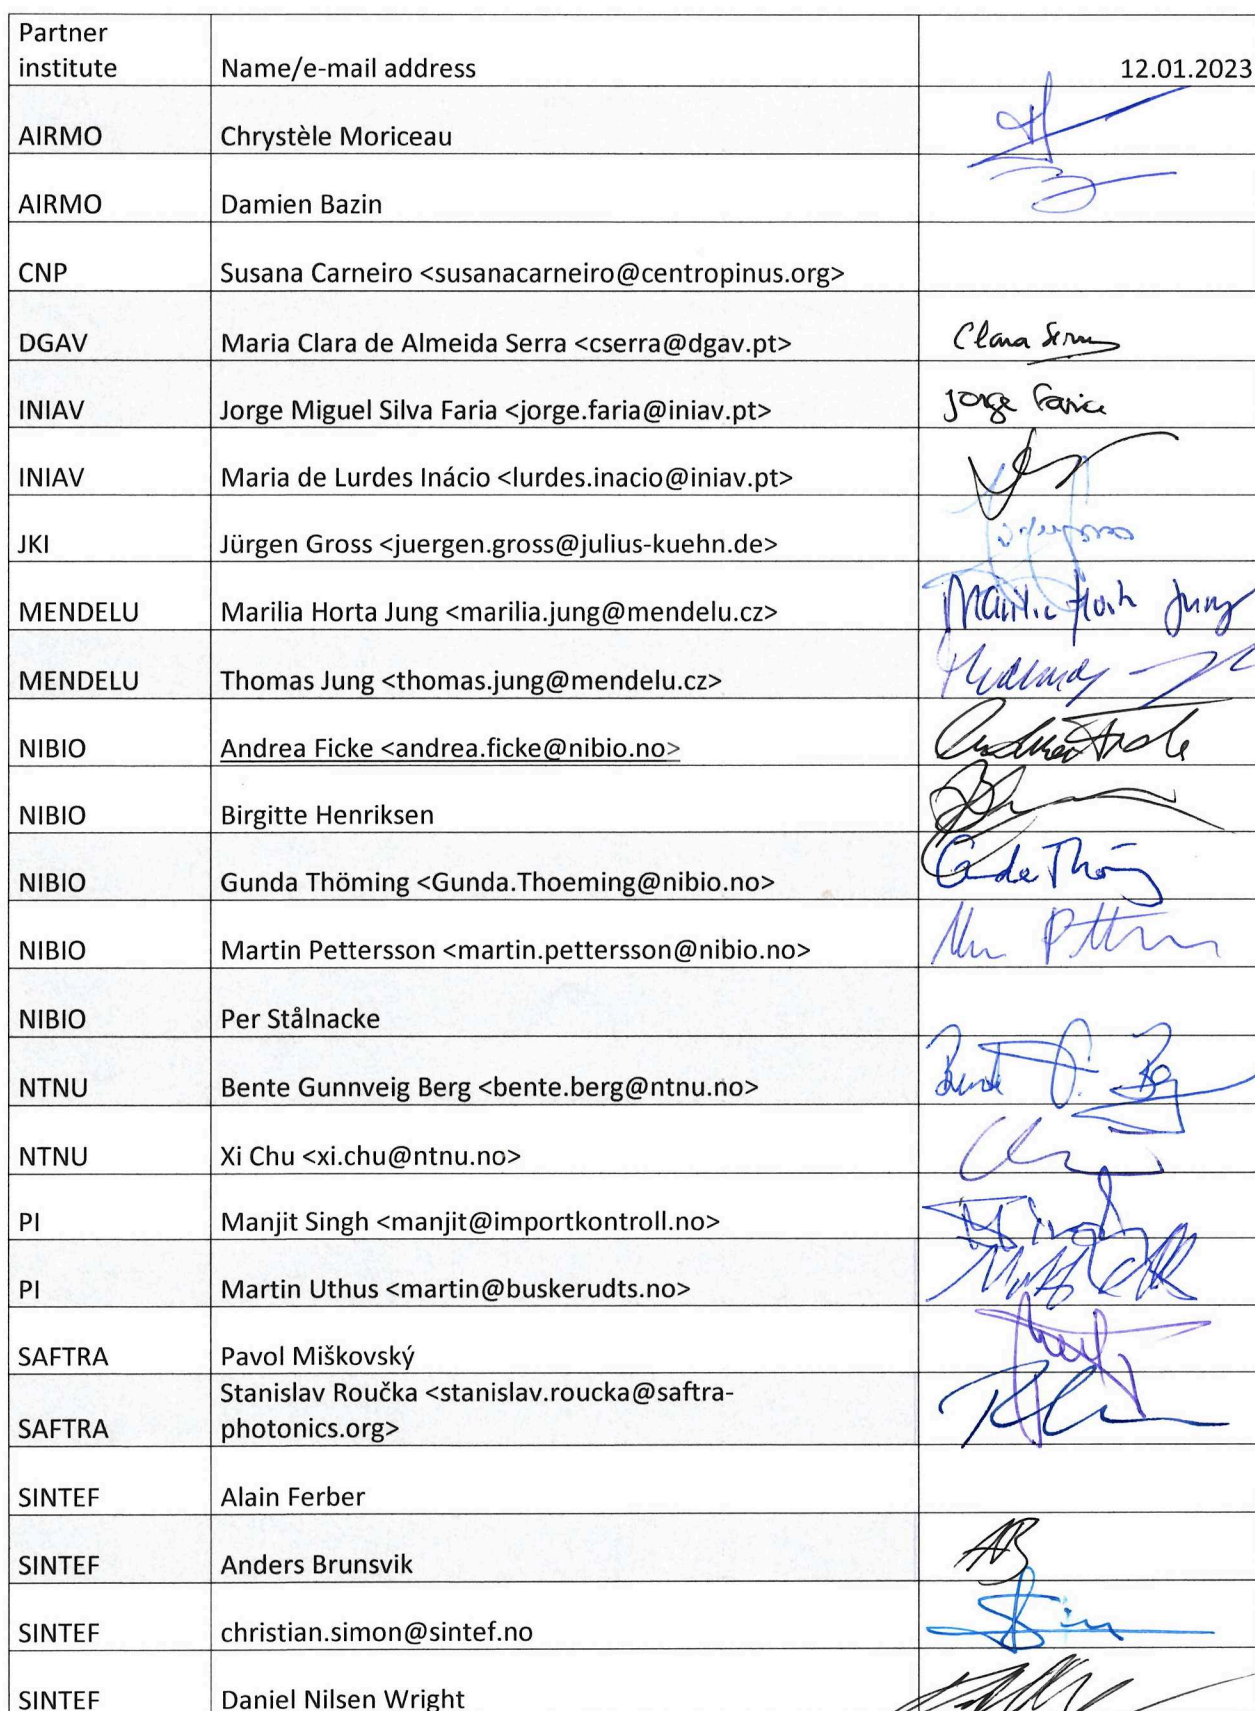 Partner
institute Name/e-mail address 12.01.2023
AIRMO Chrystèle Moriceau
AIRMO Damien Bazin
CNP Susana Carneiro <susanacarneiro@centropinus.org>
DGAV Maria Clara de Almeida Serra <cserra@dgav.pt> Clara Serra
INIAV Jorge Miguel Silva Faria <jorge.faria@iniav.pt> Jorge Faria
INIAV Maria de Lurdes Inácio <lurdes.inacio@iniav.pt>
JKI Jürgen Gross <juergen.gross@julius-kuehn.de>
MENDELU Marilia Horta Jung <marilia.jung@mendelu.cz> Marilia Horta Jung
MENDELU Thomas Jung <thomas.jung@mendelu.cz>
NIBIO Andrea Ficke <andrea.ficke@nibio.no>
NIBIO Birgitte Henriksen
NIBIO Gunda Thöming <Gunda.Thoeming@nibio.no>
NIBIO Martin Pettersson <martin.pettersson@nibio.no>
NIBIO Per Stålnacke
NTNU Bente Gunnveig Berg <bente.berg@ntnu.no>
NTNU Xi Chu <xi.chu@ntnu.no>
PI Manjit Singh <manjit@importkontroll.no>
PI Martin Uthus <martin@buskerudts.no>
SAFTRA Pavol Miškovský
Stanislav Roučka <stanislav.roucka@saftra-
SAFTRA photonics.org>
SINTEF Alain Ferber
SINTEF Anders Brunsvik AB
SINTEF christian.simon@sintef.no
SINTEF Daniel Nilsen Wright